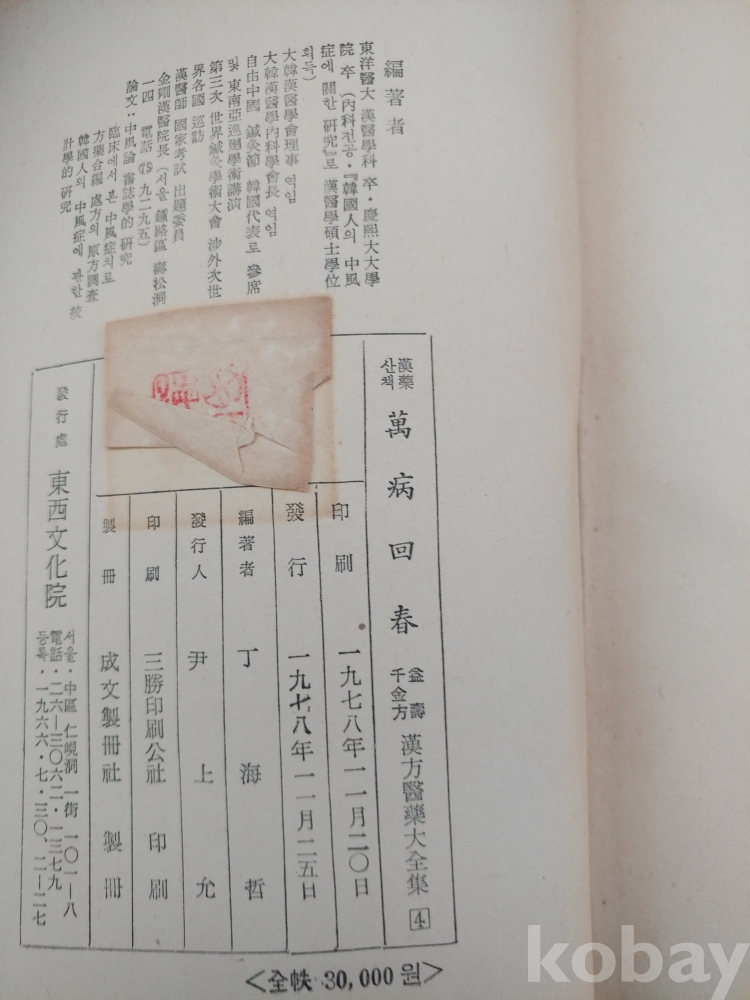 編著者
東洋醫大 漢醫學科 卒·慶熙大大學
院 卒 (內科전공·『韓國人의 中風
症에 關한 硏究』로 漢醫學碩士學位
획득)
大韓漢醫學會理事 역임
大韓漢醫學內科學會長 역임
自由中國 鍼灸節 韓國代表로 參席
및 東南亞巡廻學術講演
第三次 世界鍼灸學術大會 涉外次 世
界各國 巡訪
漢醫師 國家考試 出題委員
金剛漢醫院長 (서울 鍾路區 壽松洞
一四 電話 ㊆ 九二九五)
論文:中風論 書誌學的 硏究
臨床에서 본 中風症치료
方藥合編 處方의 原方調査
韓國人의 中風症에 관한 統
計學的 硏究
漢藥
산책
萬病回春
益壽
千金方
漢方醫藥大全集 4
印刷 一九七八年 一一月 二〇日
發行 一九七八年 一一月 二五日
編著者 丁海哲
發行人 尹上允
印刷 三勝印刷公社 印刷
製冊 成文製冊社 製冊
發行處 東西文化院
서울·中區 仁峴洞 一街 一〇一-八
電話·二六-三〇六二·一三七九
등록·一九六六·七·三〇、二-二七
<全帙 30,000원>
kobay